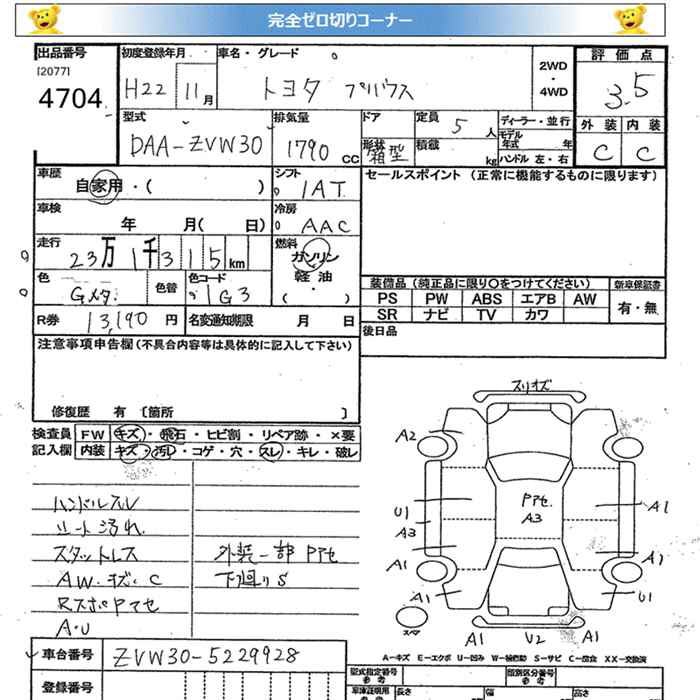 完全ゼロ切りコーナー
出品番号
[2077]
4704
初度登録年月
H22 11月
車名・グレード
トヨタ プリウス
2WD
・
4WD
評価点
3.5
外装 内装
C C
型式
DAA-ZVW30
排気量
1790 CC
ドア
形状 箱型
定員 5 人
積載 kg
ディーラー・並行
モデル年式 年
ハンドル 左・右
車歴
自家用・( )
シフト
IAT
車検
年 月( 日)
冷房
AAC
走行
23万1千315km
燃料
ガソリン
軽油
・( )
色
Gメタ.
色替
色コード
1G3
R券 13,190 円
名変通知期限 月 日
セールスポイント (正常に機能するものに限ります)
装備品 (純正品に限り○をつけてください)
PS PW ABS エアB AW
SR ナビ TV カワ
新車保証書
有・無
後日品
注意事項申告欄(不具合内容等は具体的に記入して下さい)
修復歴 有 [箇所 ]
検査員
記入欄
FW キズ・飛石・ヒビ割・リペア跡・×要
内装 キズ・汚レ・コゲ・穴・スレ・キレ・破レ
ハンドルスレ
シート汚れ
スタットレス
AW.キズ.C
RスポPアセ
A・U
外装一部Pアセ
下廻りS
スリキズ
A2
U1
A3
A1
A1
Pアセ
A3
A1
A1
U1
スペア
A1 U2 A1
A-キズ E-エクボ U-凹み W-補修跡 S-サビ C-腐食 XX-交換済
車台番号 ZVW30-5229928
登録番号
型式指定番号
参考
類別区分番号
参考
車検証明用
参考
長さ
幅
高さ